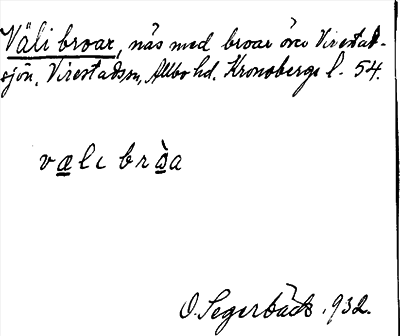 Väli broar, näs med broar över Virestad-
sjön, Virestadssn, Allbo hd. Kronobergs l. 54.
væli bròa
O. Segerbäck. 1932.